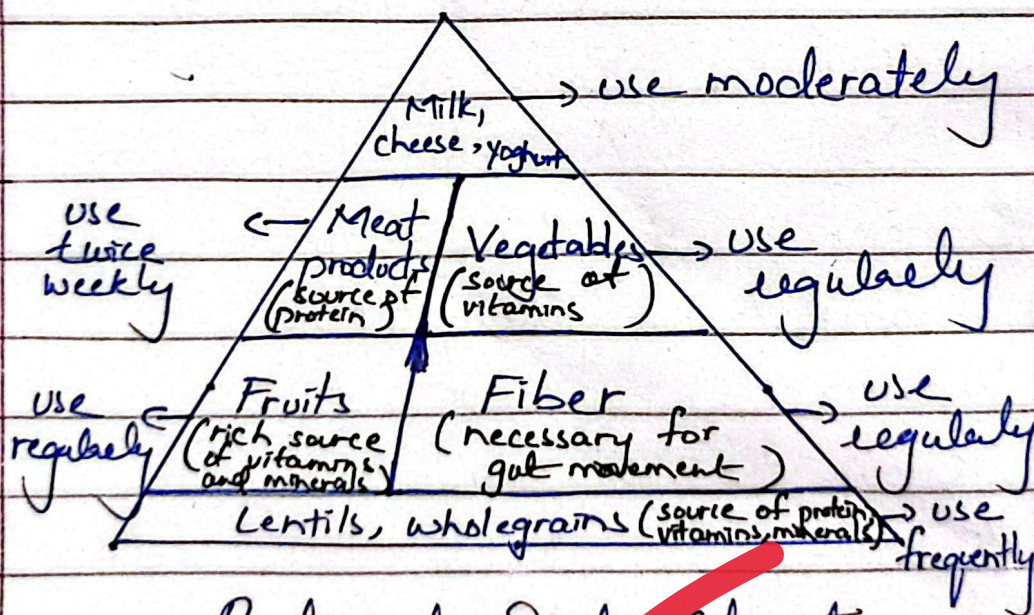 Milk,
cheese, yoghurt
→ use moderately
use
twice
weekly
Meat
products
(source of
protein)
Vegetables
(source of
vitamins
)
use
regularly
use
regularly
Fruits
(rich source
of vitamins
and minerals)
Fiber
(necessary for
gut movement)
use
regularly
Lentils, wholegrains (source of protein,
vitamins, minerals)
use
frequently